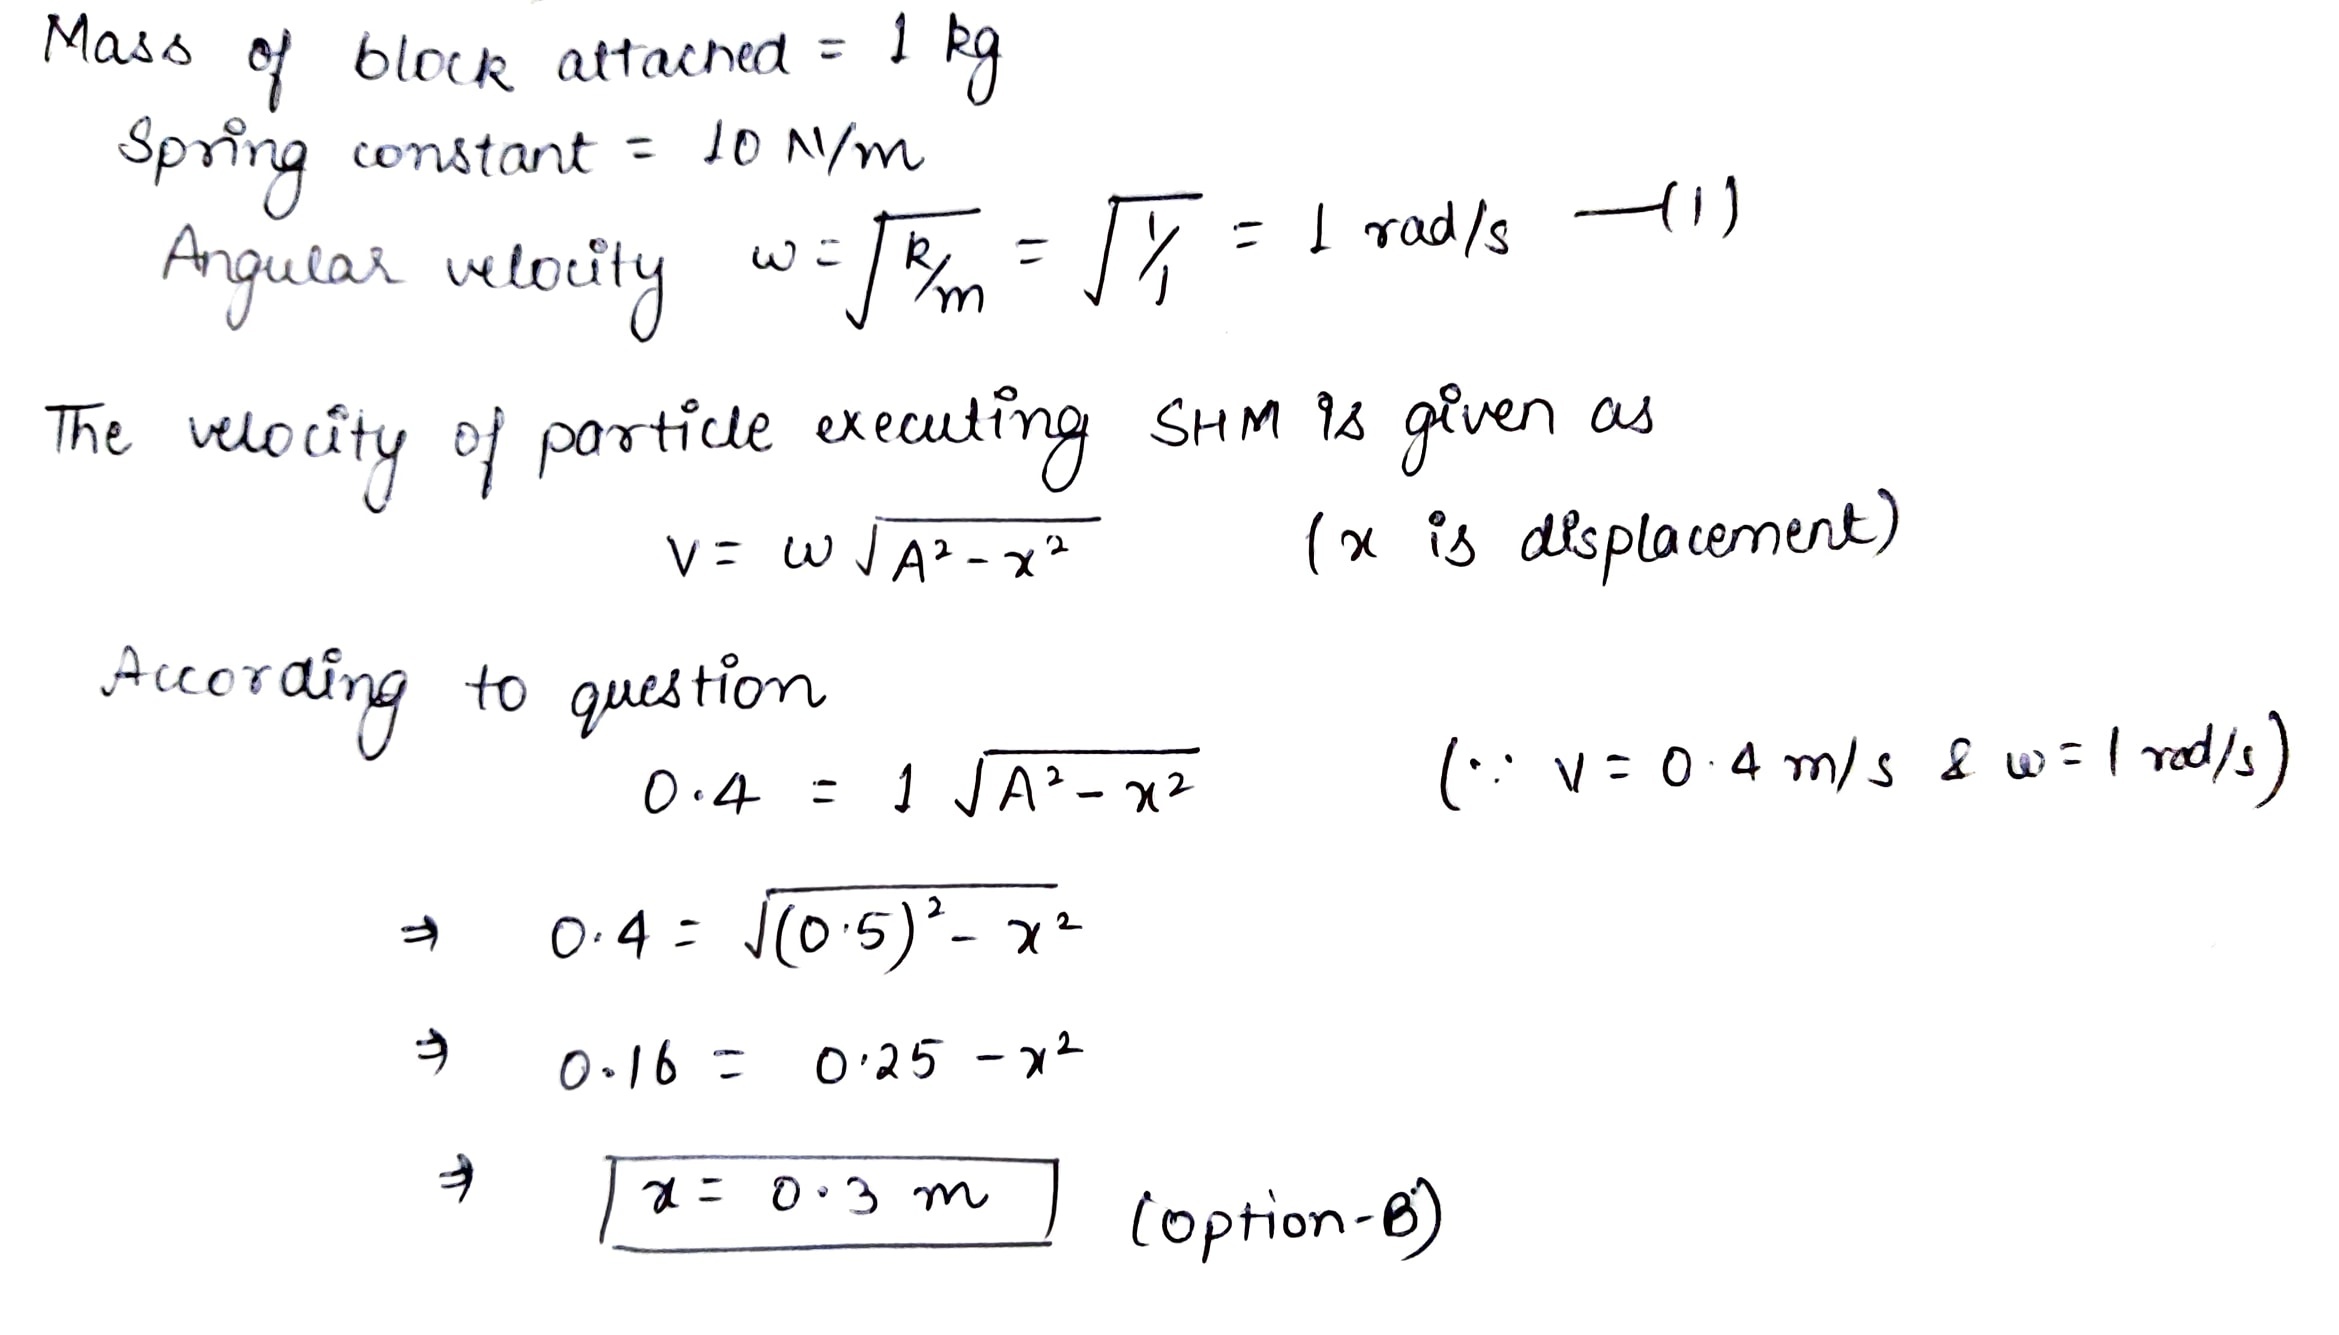 Mass of block attached = 1 kg
Spring constant = 10 N/m
Angular velocity ω = √k/m = √1/1 = 1 rad/s —(1)
The velocity of particle executing SHM is given as
V = ω √A² - x² (x is displacement)
According to question
0.4 = 1 √A² - x² (∵ V = 0.4 m/s & ω = 1 rad/s)
⇒ 0.4 = √(0.5)² - x²
⇒ 0.16 = 0.25 - x²
⇒ x = 0.3 m (option-B)